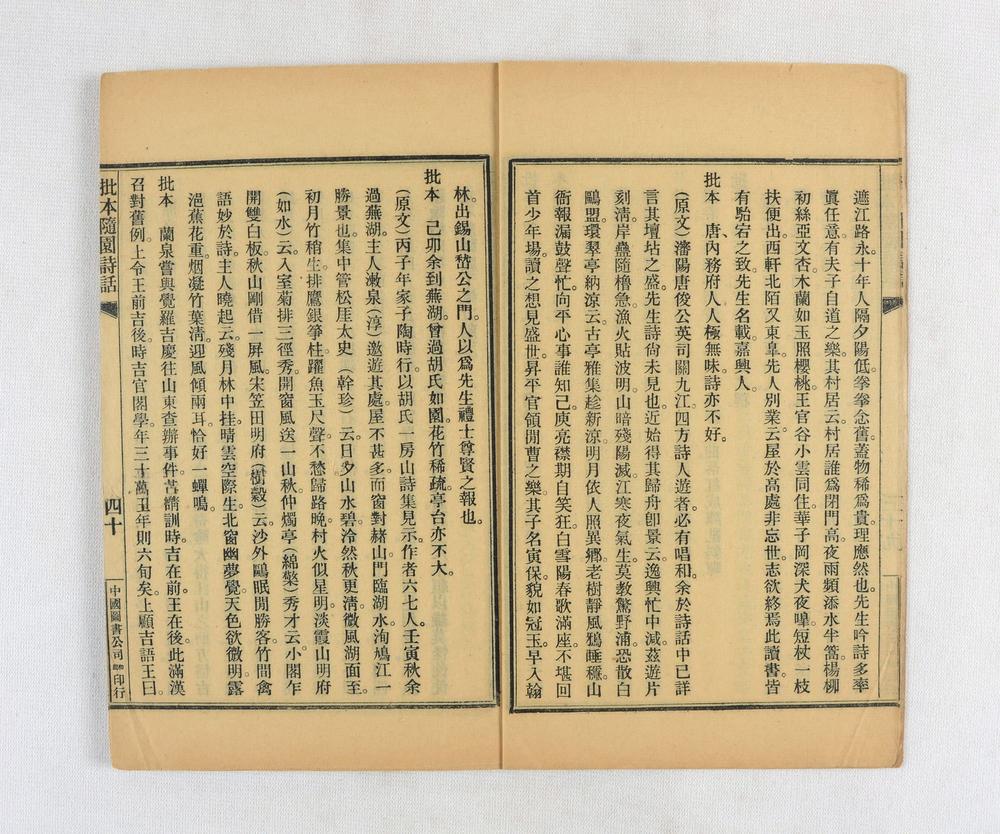 遮江路永。十年人隔夕陽低。拳拳念舊。蓋物稀爲貴。理應然也。先生吟詩多率
眞任意。有夫子自道之樂。其村居云。村居誰爲閉門高。夜雨頻添水半篙。楊柳
初絲亞文杏。木蘭如玉照櫻桃。王官谷小雲同住。華子岡深犬夜嘷。短杖一枝
扶便出。西軒北陌又東皐。先人別業云。屋於高處非忘世。志欲終焉此讀書。皆
有駘宕之致。先生名載。嘉興人。
批本 唐、內務府人。人極無味。詩亦不好。
(原文)瀋陽唐俊公英。司關九江。四方詩人遊者。必有唱和。余於詩話中已詳
言其壇坫之盛。先生詩尙未見也。近始得其歸舟卽景云。逸興忙中減。茲遊片
刻淸。岸蟲隨櫓急。漁火貼波明。山暗殘陽滅。江寒夜氣生。莫教驚野浦。恐散白
鷗盟。環翠亭納涼云。古亭雅集趁新涼。明月依人照異鄉。老樹靜風鴉睡穩。山
衙報漏鼓聲忙。向平心事誰知己。庾亮襟期自笑狂。白雪陽春歌滿座。不堪回
首少年場。讀之想見盛世昇平。官領閒曹之樂。其子名寅保。貌如冠玉。早入翰
林。出錫山嵇公之門。人以爲先生禮士尊賢之報也。
批本 己卯余到蕪湖。曾過胡氏如園。花竹稀疏。亭台亦不大。
(原文)丙子年家子陶時行。以胡氏一房山詩集見示。作者六七人。壬寅秋余
過蕪湖。主人漱泉(淳)邀遊其處。屋不甚多。而窗對赭山。門臨湖水。洵鳩江一
勝景也。集中管松厓太史(幹珍)云。日夕山水碧。泠然秋更淸。微風湖面至。
初月竹稍生。排鷹銀箏柱。躍魚玉尺聲。不愁歸路晚。村火似星明。淡霞山明府
(如水)云。入室菊排三徑秀。開窗風送一山秋。仲燭亭(綿槃)秀才云。小閣乍
開雙白板。秋山剛借一屏風。宋笠田明府(樹穀)云。沙外鷗眠閒勝客。竹間禽
語妙於詩。主人曉起云。殘月林中挂。晴雲空際生。北窗幽夢覺。天色欲微明。露
浥蕉花重。烟凝竹葉淸。迎風傾兩耳。恰好一蟬鳴。
批本 蘭泉嘗與覺羅吉慶往山東查辦事件。書請訓時。吉在前。王在後。此滿漢
召對舊例。上令王前吉後。時吉官閣學。年三十萬丑年則六旬矣。上顧吉語王曰。
批本隨園詩話
四十
中國圖書公司和記印行